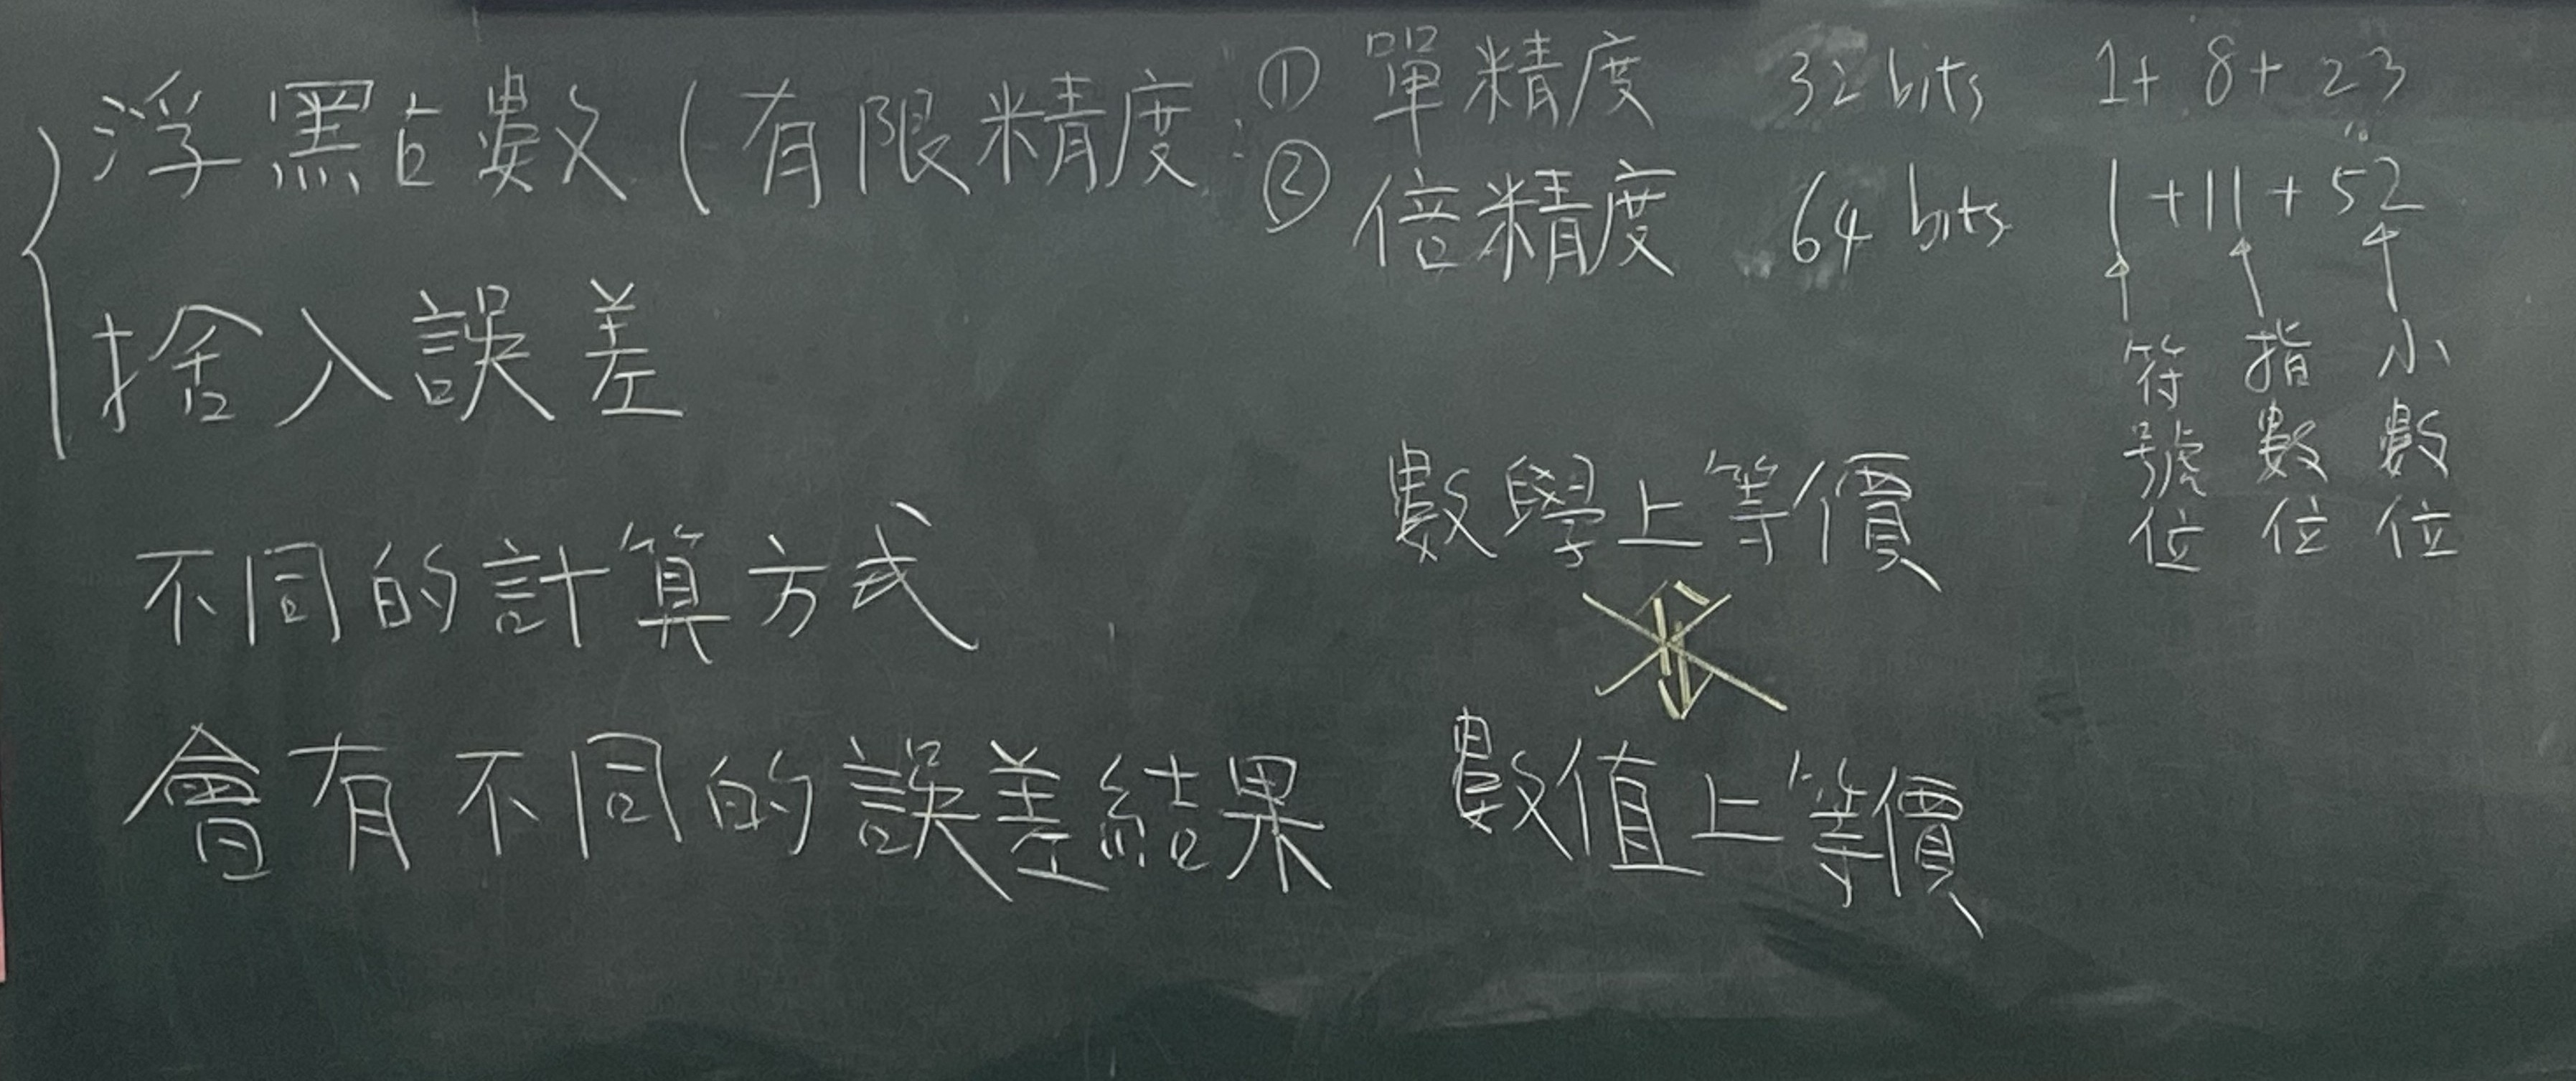 浮點數(有限精度: ① 單精度 32 bits 1+8+23
② 倍精度 64 bits 1+11+52
符號位 指數位 小數位
捨入誤差
不同的計算方式
會有不同的誤差結果
數學上等價
⇕
數值上等價